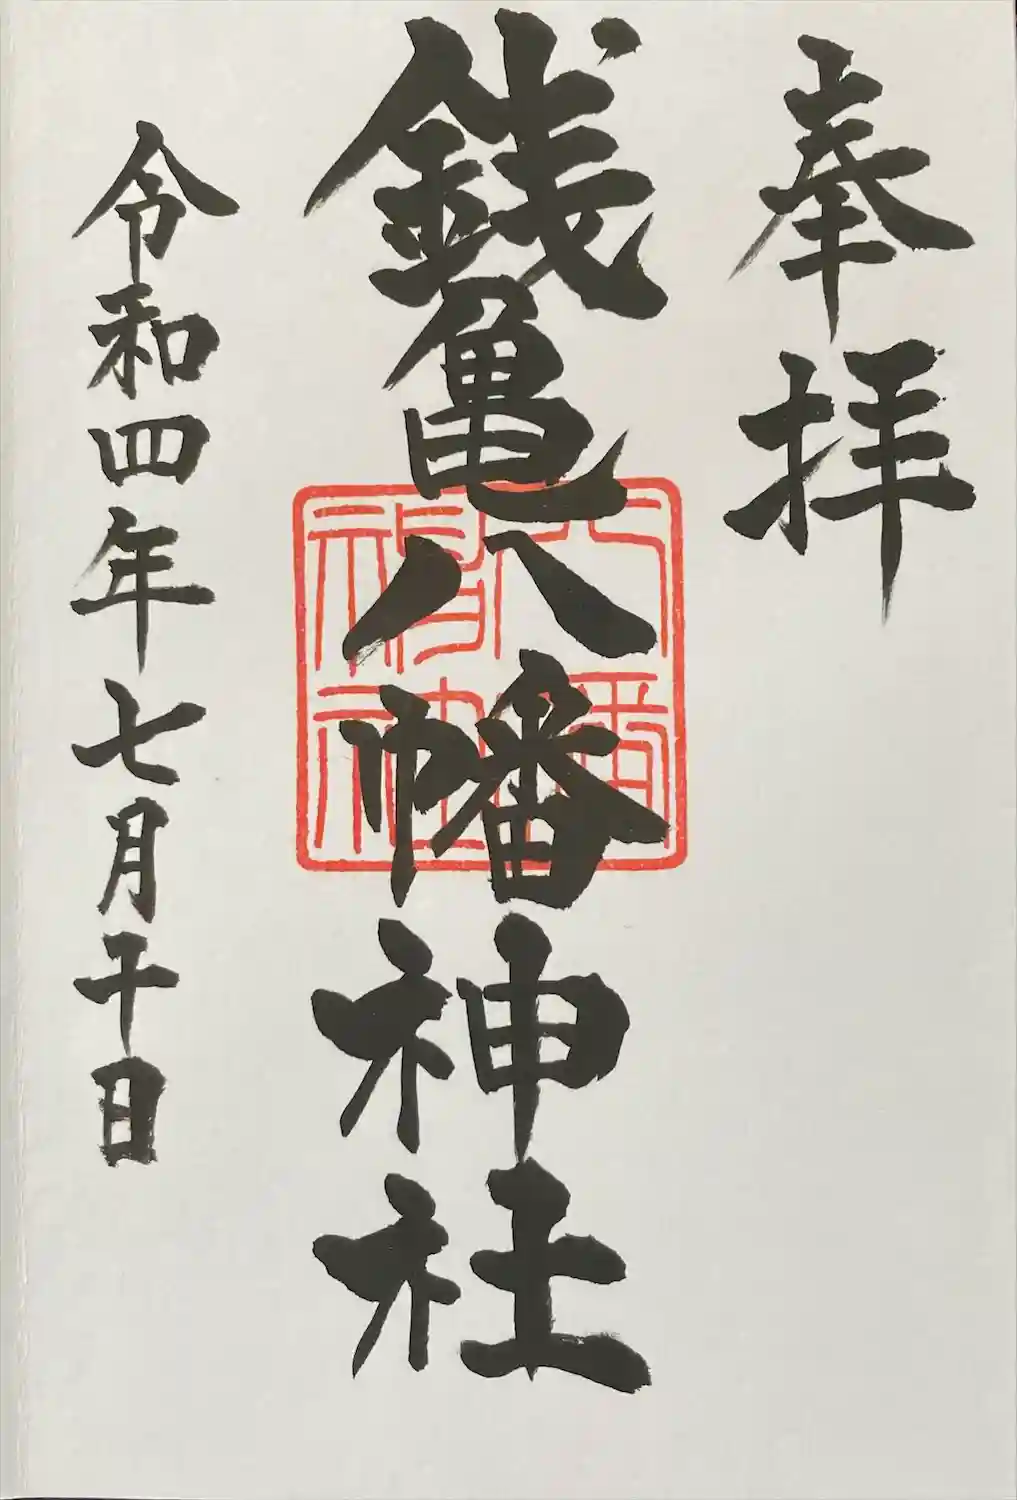 奉拝
銭亀八幡神社
八幡
神社
令和四年七月十日